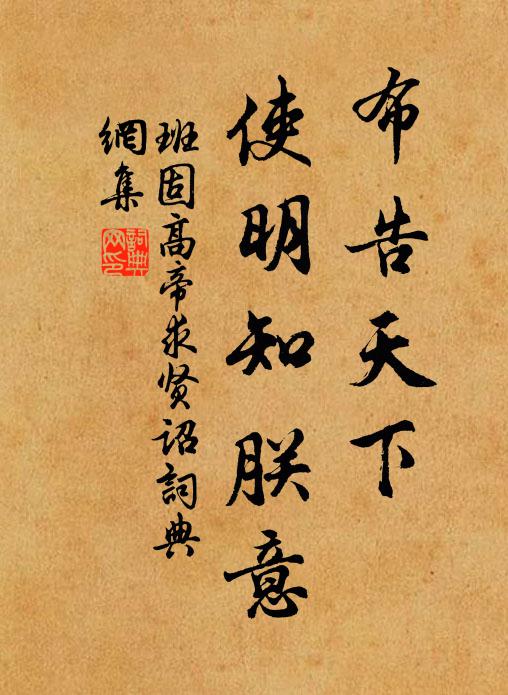 布告天下
使明知朕意
班固高帝求贤诏詞典
網集
詞典
网印